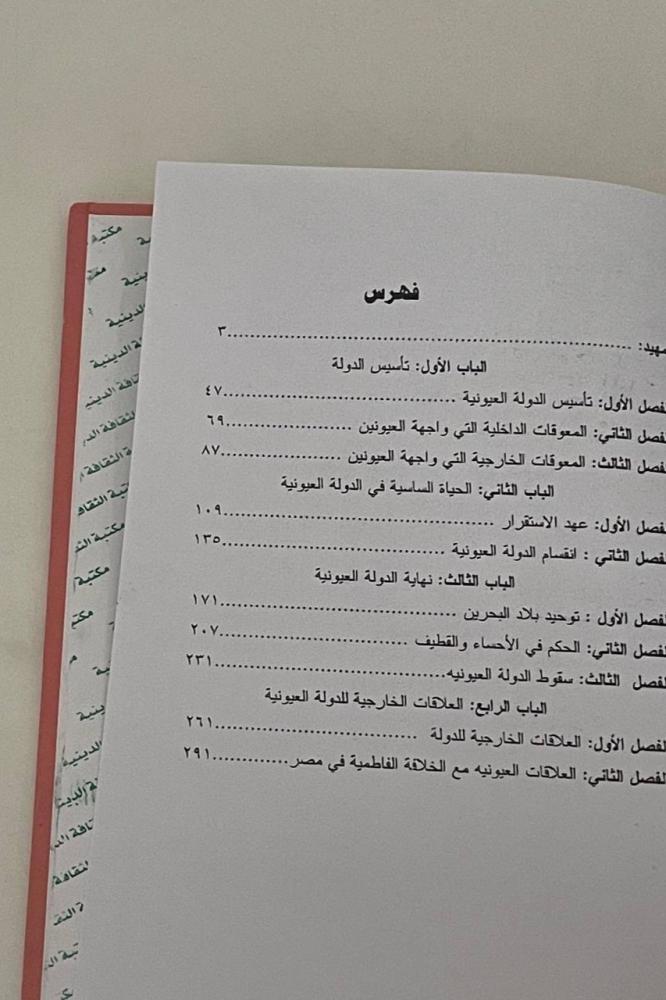 فهرس
مهيد: ...................................................................٣
الباب الأول: تأسيس الدولة
لفصل الأول: تأسيس الدولة العيونية ......................................٤٧
لفصل الثاني: المعوقات الداخلية التي واجهة العيونين .....................٦٩
لفصل الثالث: المعوقات الخارجية التي واجهة العيونين ....................٨٧
الباب الثاني: الحياة الساسية في الدولة العيونية
لفصل الأول: عهد الاستقرار ............................................١٠٩
لفصل الثاني : انقسام الدولة العيونية ....................................١٣٥
الباب الثالث: نهاية الدولة العيونية
لفصل الأول : توحيد بلاد البحرين .......................................١٧١
لفصل الثاني: الحكم في الأحساء والقطيف ...............................٢٠٧
لفصل الثالث: سقوط الدولة العيونيه.....................................٢٣١
الباب الرابع: العلاقات الخارجية للدولة العيونية
لفصل الأول: العلاقات الخارجية للدولة ..................................٢٦١
لفصل الثاني: العلاقات العيونيه مع الخلافة الفاطمية في مصر.............٢٩١